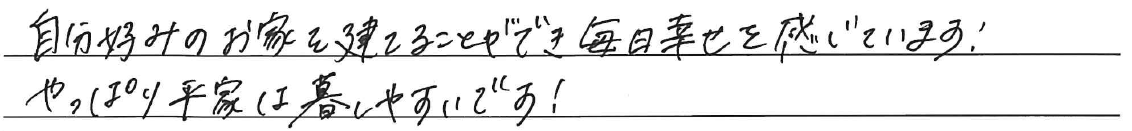 自分好みのお家を建てることができ毎日幸せを感じています!
やっぱり平家は暮しやすいです!